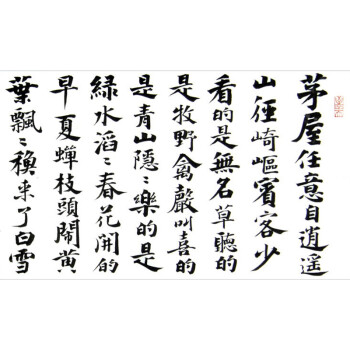 茅屋任意自逍遥
山径崎嶇賓客少
看的是無名草聽的
是牧野禽聲叫喜的
是青山隱〻樂的是
綠水滔〻春花開的
早夏蟬枝頭鬧黄
葉飄〻換来了白雪